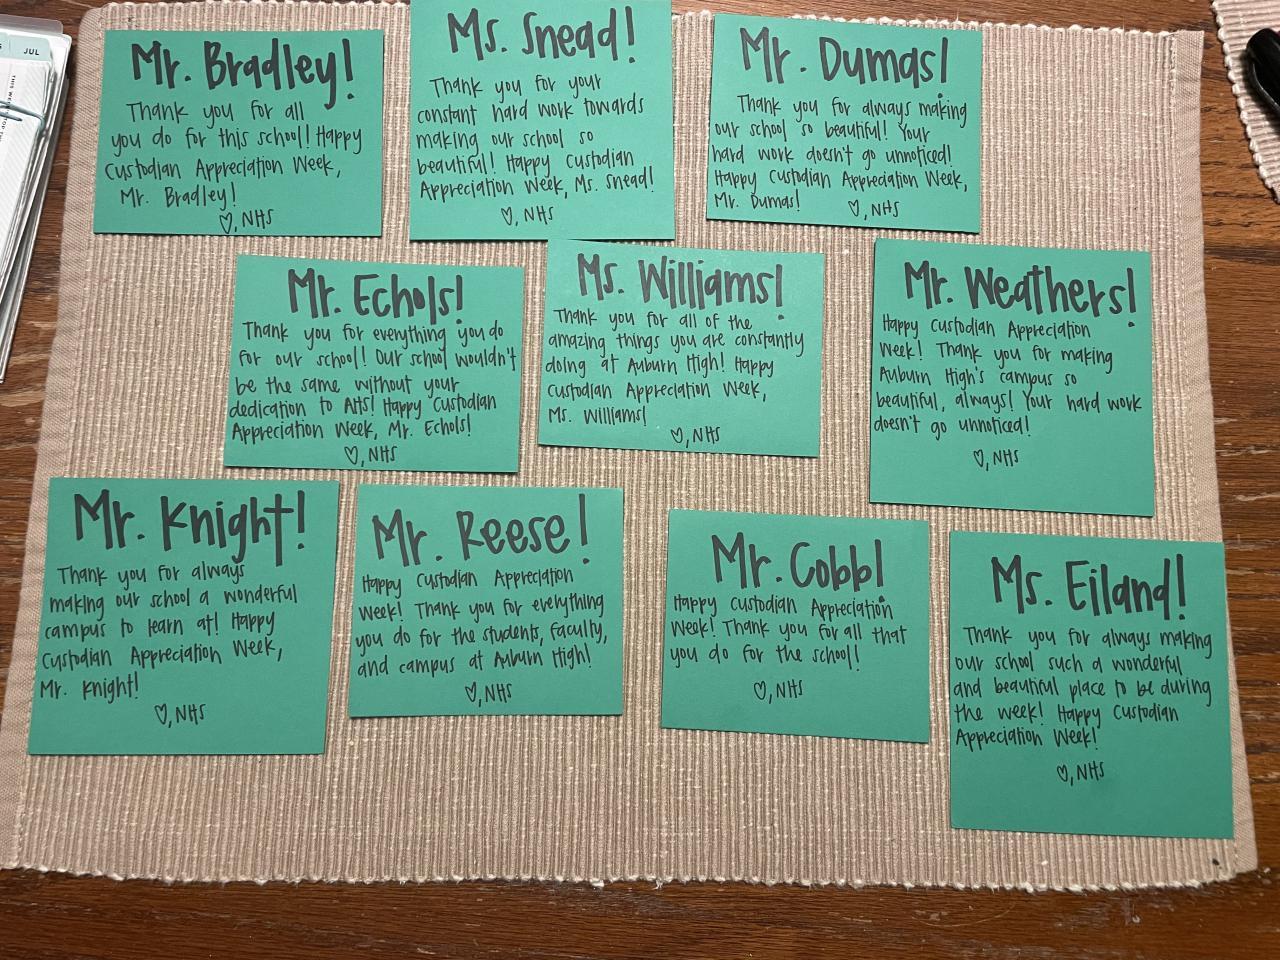 JUL
Mr. Bradley!
Thank you for all
you do for this school! Happy
Custodian Appreciation Week,
Mr. Bradley!
♡, NHS
Ms. Snead!
Thank you for your
constant hard work towards
making our school so
beautiful! Happy Custodian
Appreciation Week, Ms. Snead!
♡, NHS
Mr. Dumas!
Thank you for always making
our school so beautiful! Your
hard work doesn't go unnoticed!
Happy Custodian Appreciation Week,
Mr. Dumas!
♡, NHS
Mr. Echols!
Thank you for everything you do
for our school! Our school wouldn't
be the same without your
dedication to AHS! Happy Custodian
Appreciation Week, Mr. Echols!
♡, NHS
Ms. Williams!
Thank you for all of the
amazing things you are constantly
doing at Auburn High! Happy
Custodian Appreciation Week,
Ms. Williams!
♡, NHS
Mr. Weathers!
Happy Custodian Appreciation
Week! Thank you for making
Auburn High's campus so
beautiful, always! Your hard work
doesn't go unnoticed!
♡, NHS
Mr. Knight!
Thank you for always
making our school a wonderful
campus to learn at! Happy
Custodian Appreciation Week,
Mr. Knight!
♡, NHS
Mr. Reese!
Happy Custodian Appreciation
Week! Thank you for everything
you do for the students, faculty,
and campus at Auburn High!
♡, NHS
Mr. Cobb!
Happy Custodian Appreciation
Week! Thank you for all that
you do for the school!
♡, NHS
Ms. Eiland!
Thank you for always making
our school such a wonderful
and beautiful place to be during
the week! Happy Custodian
Appreciation Week!
♡, NHS